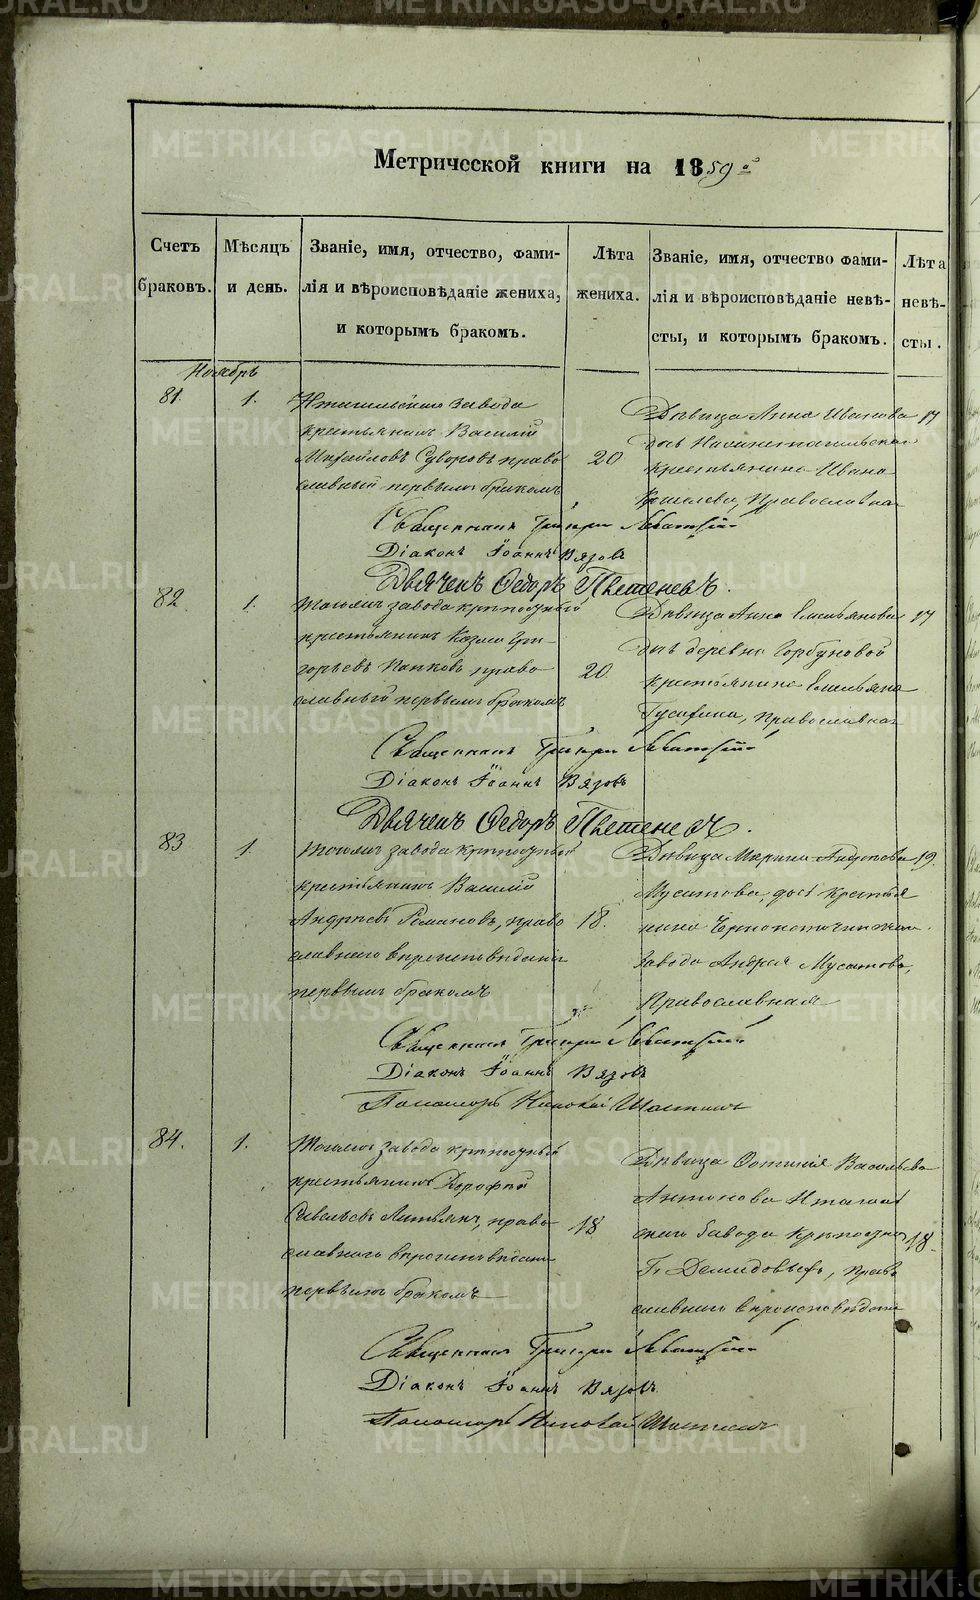 Метрической книги на 1859й
Счетъ браковъ.
Мѣсяцъ и день.
Званіе, имя, отчество, фами-
лія и вѣроисповѣданіе жениха,
и которымъ бракомъ.
Лѣта жениха.
Званіе, имя, отчество фами-
лія и вѣроисповѣданіе невѣ-
сты, и которымъ бракомъ.
Лѣта невѣ-
сты.
Ноябрь
81. 1.
завода
крестьянинъ Василій
Михайловъ Суворовъ право
славный первымъ бракомъ
20
Дѣвица Анна Иванова
дочь
крестьянина Ивана
Православная
17
Священникъ Григорій
Діаконъ Іоаннъ Вязовъ
Дьячекъ Ѳедоръ Пѣтеневъ.
82. 1.
Тогожъ завода крѣпостный
крестьянинъ Козма Гри
горьевъ Папковъ право
славный первымъ бракомъ
20
Дѣвица Анна Емельянова
дочь деревни Горбуновой
крестьянина Емельяна
Гусарина, Православная
17
Священникъ Григорій
Діаконъ Іоаннъ Вязовъ
Дьячекъ Ѳедоръ Пѣтеневъ.
83 1.
Тогожъ завода крѣпостный
крестьянинъ Василій
Андреевъ Романовъ, право
славнаго вѣроисповѣданія
первымъ бракомъ
18.
Дѣвица Марина Андреева
Мусатова, дочь крестья
нина Черноисточинскаго
завода Андрея Мусатова,
Православная
19.
Священникъ Григорій
Діаконъ Іоаннъ Вязовъ
Пономарь Николай
84. 1.
Тогожъ завода крѣпостный
крестьянинъ Дорофей
Савельевъ право
славнаго вѣроисповѣданія
первымъ бракомъ
18
Дѣвица Фотинія Васильева
Антонова Нтагил
скаго завода
Г. Демидовыхъ, Право
славнаго вѣроисповѣданія
18.
Священникъ Григорій
Діаконъ Іоаннъ Вязовъ
Пономарь Николай
METRIKI.GASO-URAL.RU